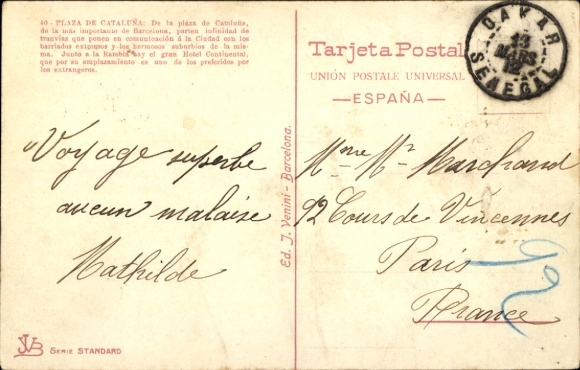 40 - PLAZA DE CATALUÑA: De la plaza de Cataluña,
de la más importante de Barcelona, parten infinidad de
tranvías que ponen en comunicación á la Ciudad con los
barriados extremos y los hermosos suburbios de la mis-
ma. Junto a la Rambla hay el gran Hotel Continental,
que por su emplazamiento es uno de los preferidos por
los extrangeros.
Voyage superbe
aucun malaise
Mathilde
JVB SERIE STANDARD
Ed. J. Venini - Barcelona.
Tarjeta Postal
UNIÓN POSTALE UNIVERSAL
ESPAÑA
DAKAR
MARS
12
SENEGAL
Mme Mr Marchand
92 Cours de Vincennes
Paris
France
92